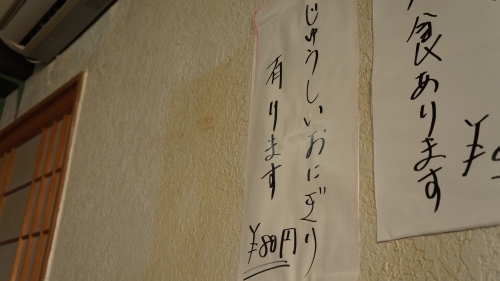 食あります
じゅうしいおにぎり
有ります
¥80円